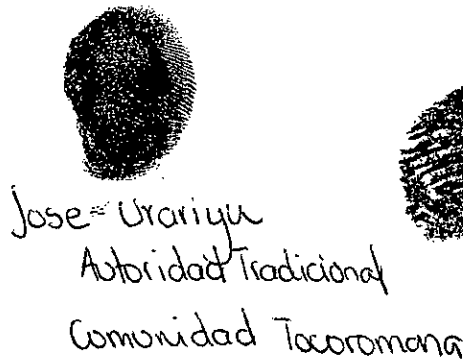 Jose Urariyu
Autoridad Tradicional
Comunidad Tocoromana